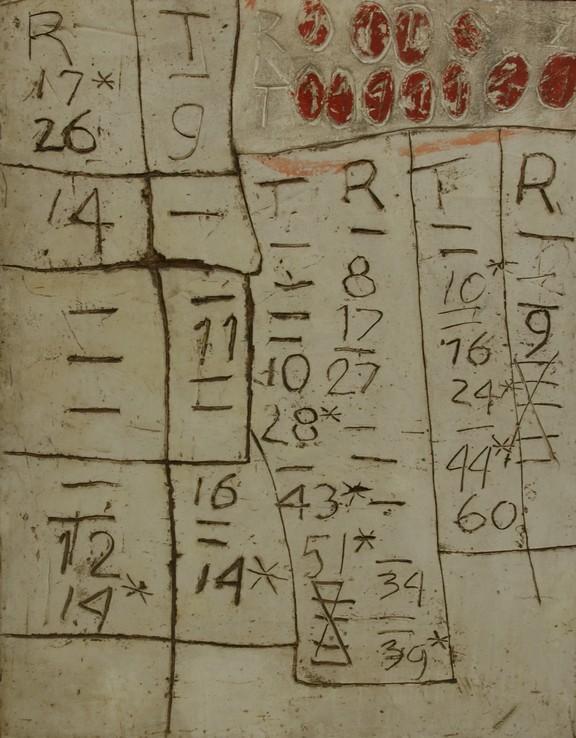 R T
17* —
26 9
14 —
— —
— 11
— —
— 16
— —
12 —
14* 14*
R
T
T R
— —
— 8
— 17
— —
10 27
28* —
— —
43* —
51* —
34
—
39*
T R
— —
— —
10* —
— —
16 9
24*
—
44*
60